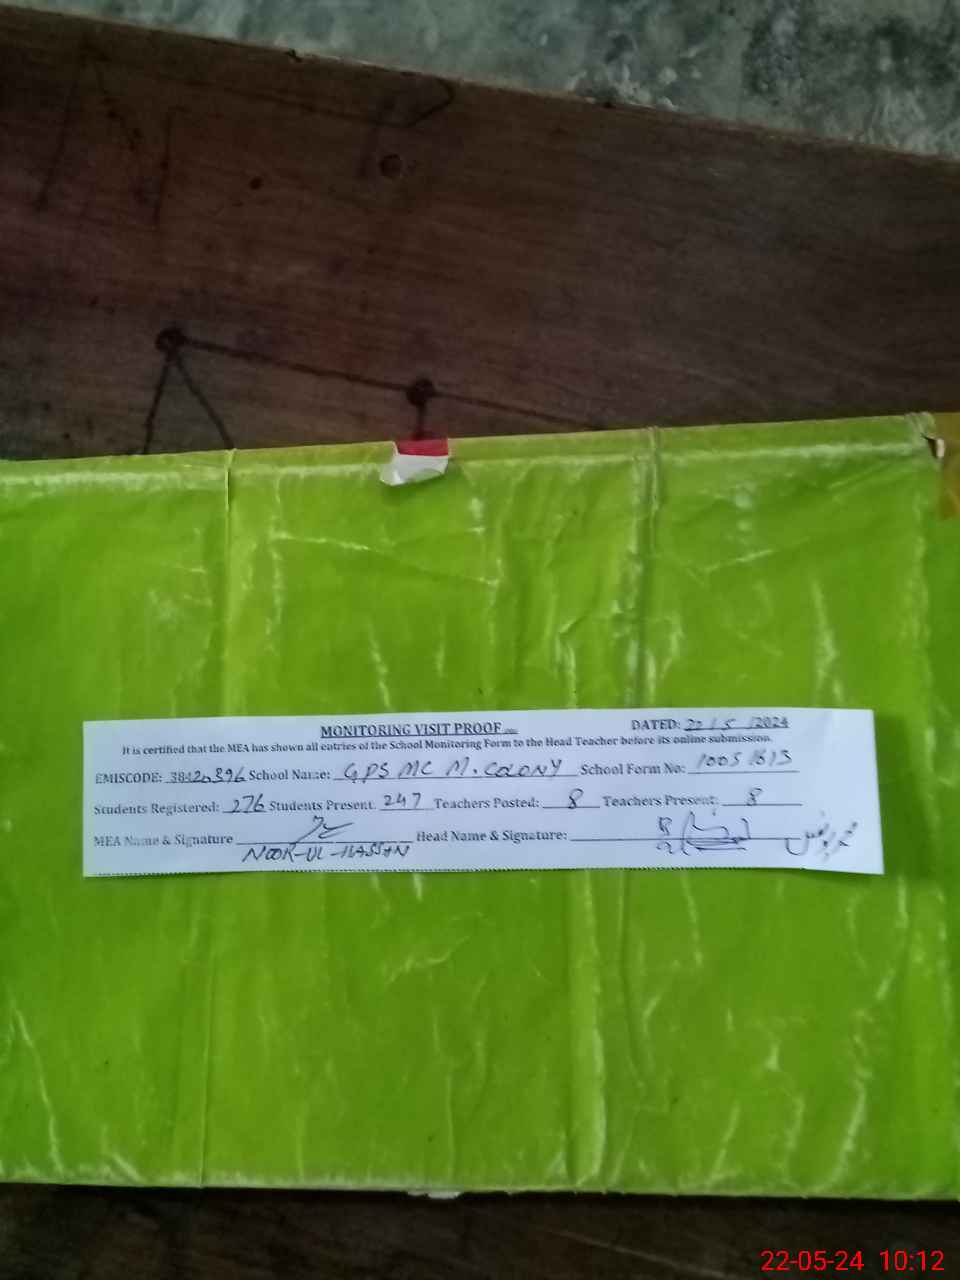 MONITORING VISIT PROOF
DATED: 22/5/2024
It is certified that the MEA has shown all entries of the School Monitoring Form to the Head Teacher before its online submission.
EMISCODE: 38420396 School Name: GPS MC M. COLONY School Form No: 10051613
Students Registered: 276 Students Present: 247 Teachers Posted: 8 Teachers Present: 8
MEA Name & Signature Head Name & Signature:
NOOR-UL-HASSAN
22-05-24 10:12